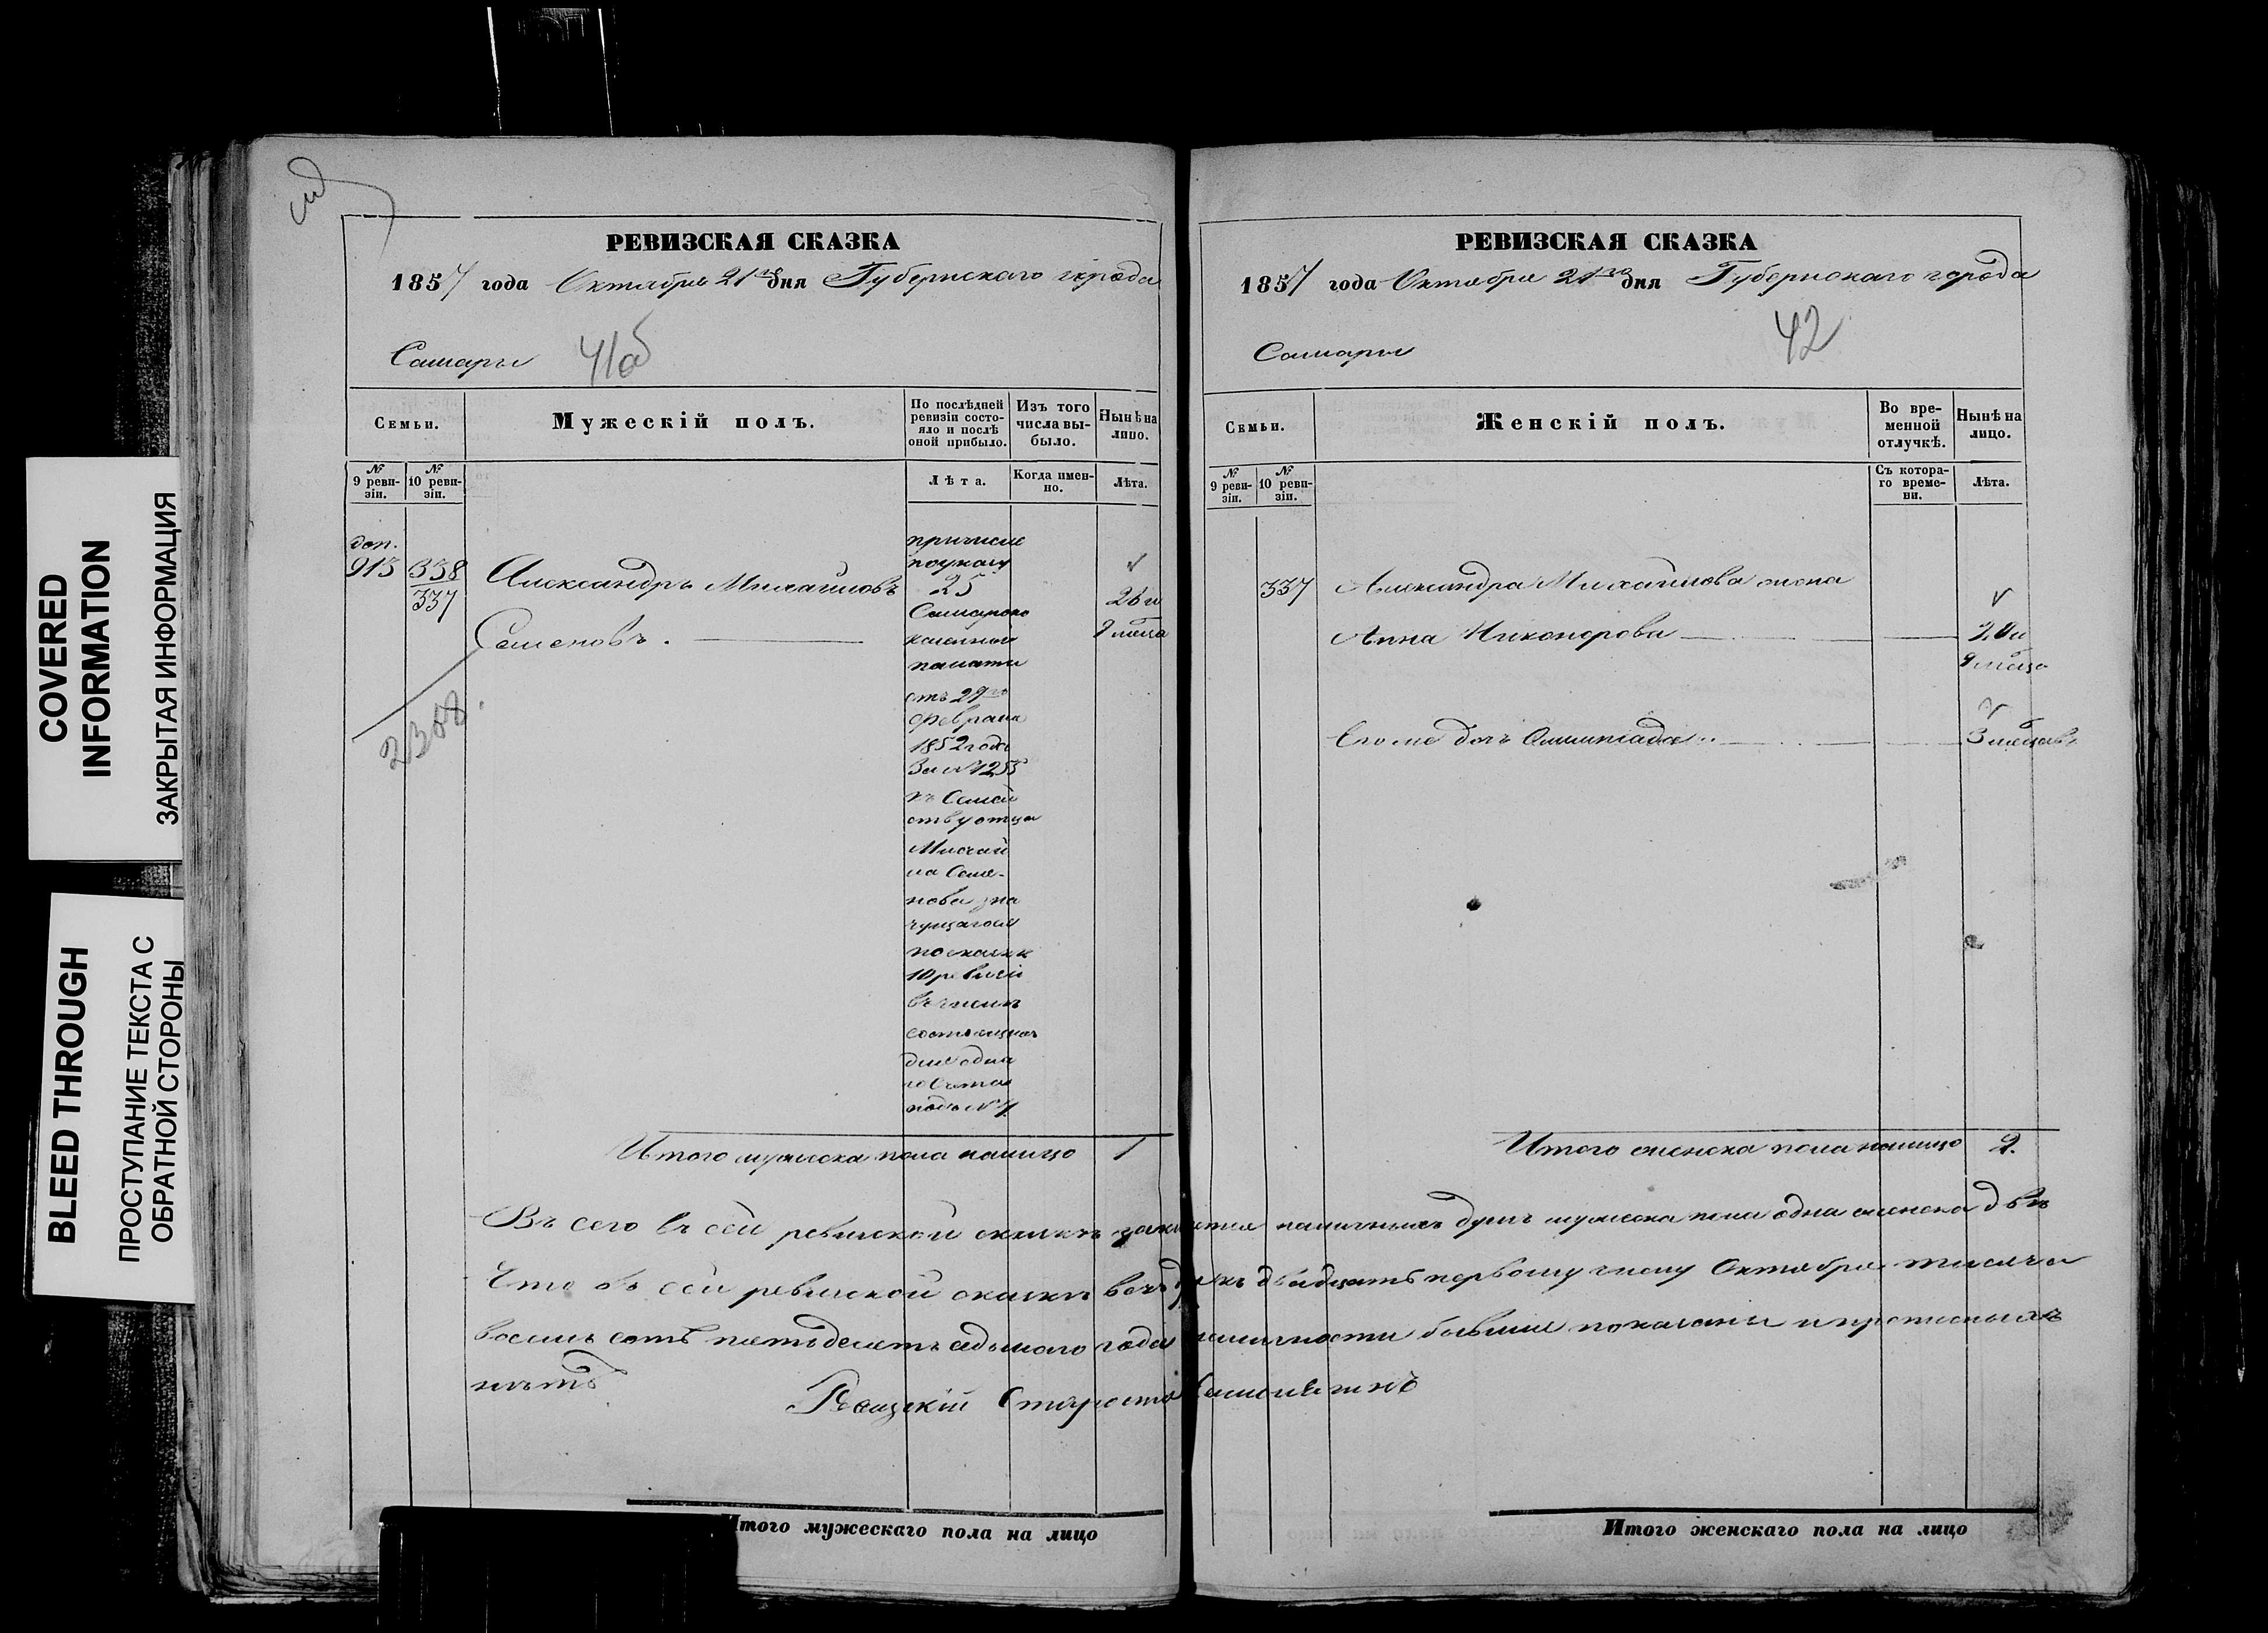 COVERED
INFORMATION
ЗАКРЫТАЯ ИНФОРМАЦИЯ
BLEED THROUGH
ПРОСТУПАНИЕ ТЕКСТА С
ОБРАТНОЙ СТОРОНЫ
РЕВИЗСКАЯ СКАЗКА
1857 года Октября 21го дня Губернскаго города
Самары 41об
Семьи.
Мужескій полъ.
По послѣдней
ревизіи состо-
яло и послѣ
оной прибыло.
Изъ того
числа вы-
было.
Нынѣ на
лицо.
№
9 реви-
зіи.
№
10 реви-
зіи.
Лѣта.
Когда имен-
но.
Лѣта.
доп.
913
338
337
Александръ Михайловъ
Семеновъ.
2308.
причисле
по указу
25
Самарско
казенной
палаты
отъ 29го
февраля
1852 года
За №1255
къ Семей
ству отца
Михай
ла Семе-
нова зна
чущагося
по сказкѣ
10 ревизіи
состоящихъ
подъ №
26 и
9 месца
Итого мужеска пола налицо 1
РЕВИЗСКАЯ СКАЗКА
1857 года Октября 21го дня Губернскаго города
Самары
42
Семьи.
Женскій полъ.
Во вре-
менной
отлучкѣ.
Нынѣ на
лицо.
№
9 реви-
зіи.
№
10 реви-
зіи.
Съ котора-
го време-
ни.
Лѣта.
337
Александра Михайлова жена
Анна Никонорова
9 месца
Его же дочь Олимпіада
3 месцовъ
Итого женска пола налицо 2.
Въ сего въ сей ревизской сказкѣ наличныхъ душъ мужеска пола одна женска двѣ
Что въ сей ревизской сказкѣ всѣ къ двадцать первому числу Октября тысяча
восемь сотъ пятьдесятъ седьмаго года наличности бывшіе показаны и прописныхъ
нѣтъ
Староста
Итого мужескаго пола на лицо
Итого женскаго пола на лицо